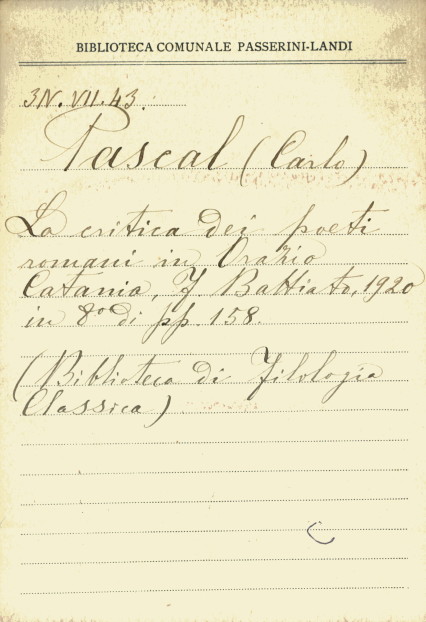 BIBLIOTECA COMUNALE PASSERINI-LANDI
3N.VII.43.
Pascal (Carlo)
La critica dei poeti
romani in Orazio
Catania, F Battiato, 1920
in 8º di pp. 158.
(Biblioteca di Filologia
Classica)